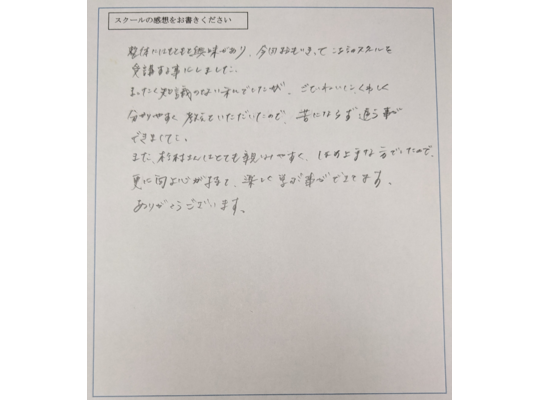 スクールの感想をお書きください
整体にはもともと興味があり、今回おもいきって こちらのスクールを
受講する事にしました。
まったく知識のない私でしたが、ていねいに、くわしく
分かりやすく 教えていただいたので、苦にならず 通う事が
できました。
また、杉村さんはとても親しみやすく、ほめ上手な方でしたので、
更に向上心がまして、楽しく 学ぶ事ができてます。
ありがとうございます。